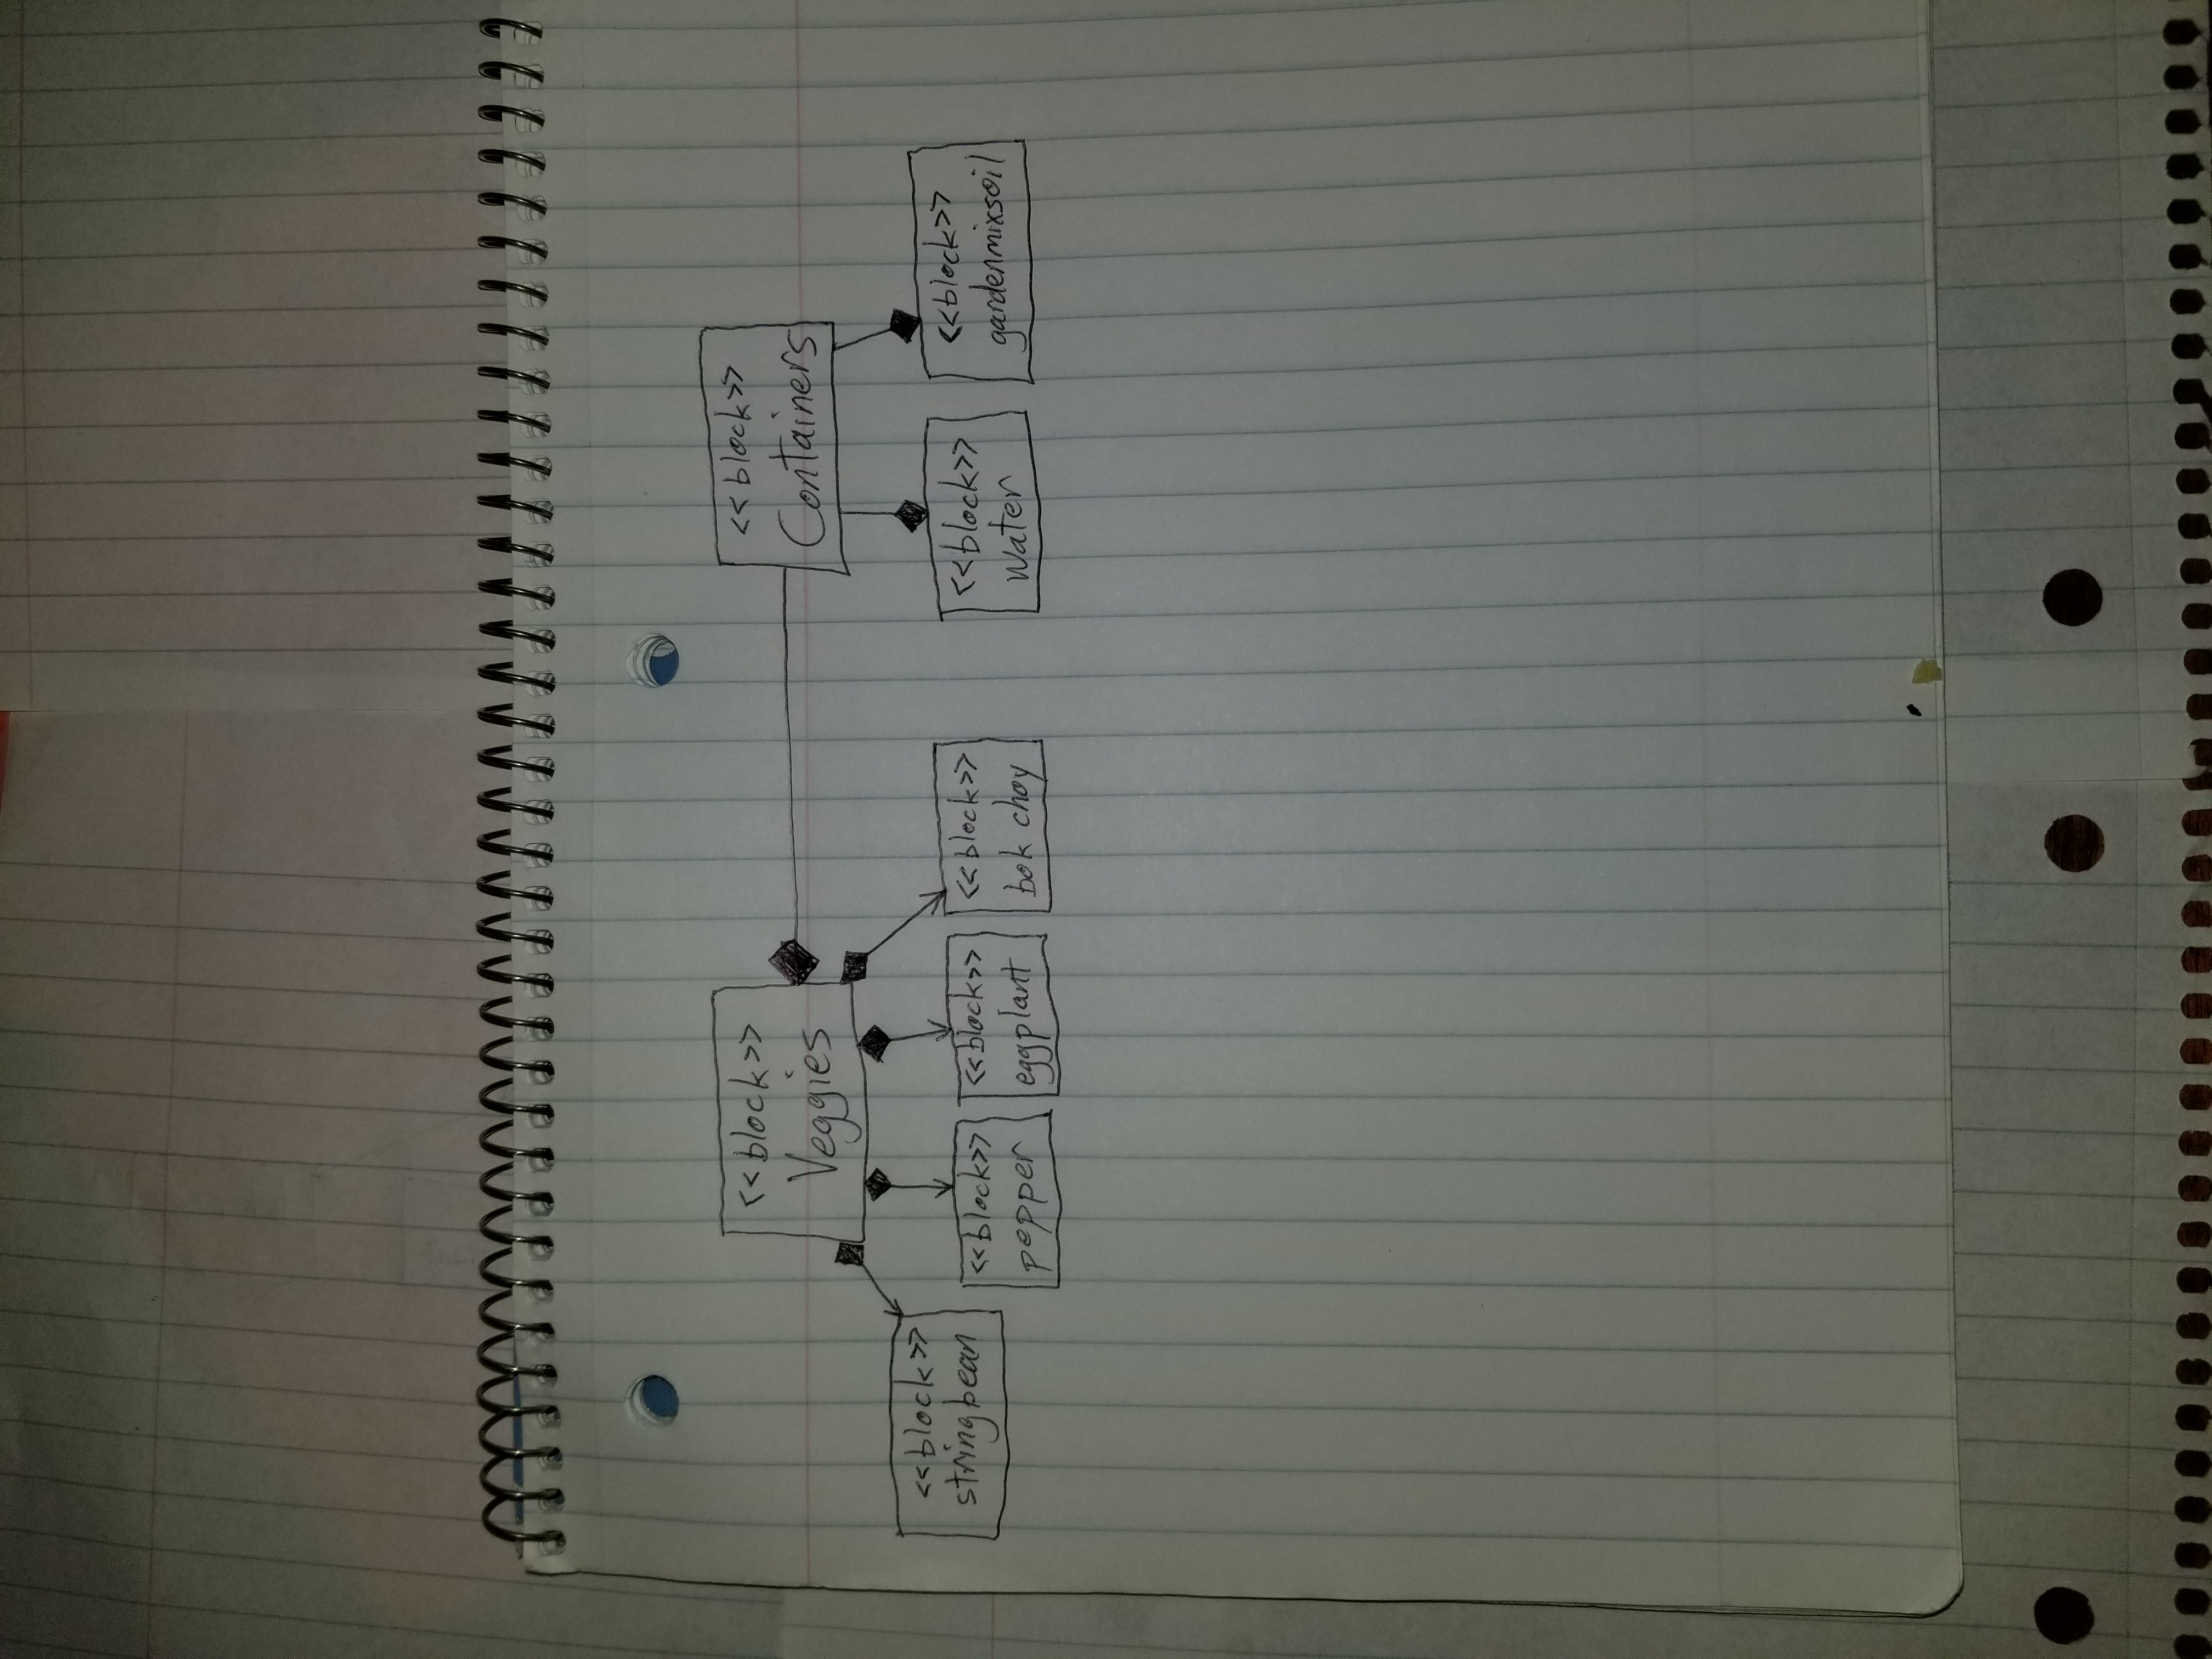 <<block>>
Veggies
<<block>>
Containers
<<block>>
stringbean
<<block>>
pepper
<<block>>
eggplant
<<block>>
bok choy
<<block>>
water
<<block>>
gardenmixsoil